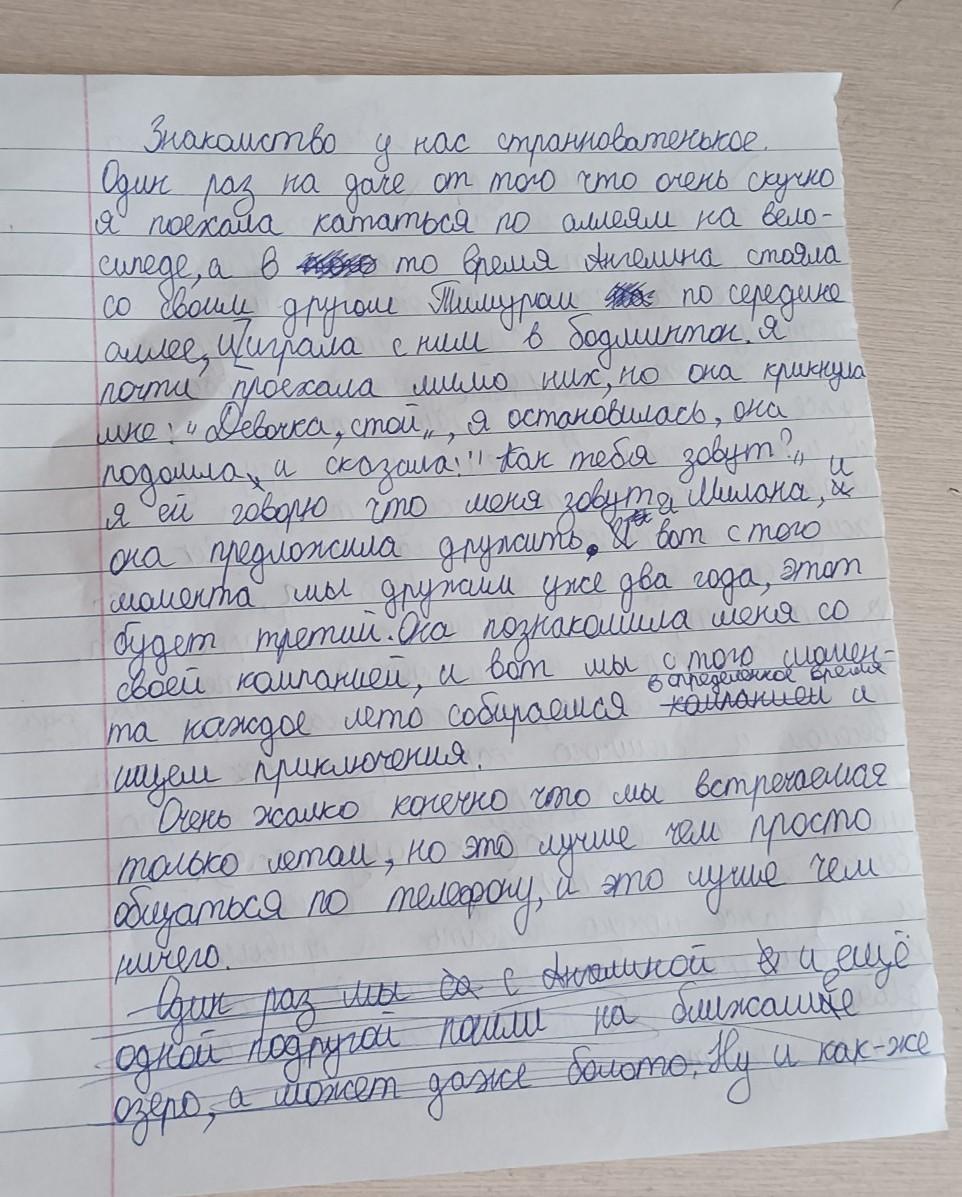 Знакомство у нас странноватенькое.
Один раз на даче от того что очень скучно
я поехала кататься по аллеям на вело-
сипеде, а в то время Ангелина стояла
со своим другом Тимурам по середине
аллее, и играла с ним в бодминтон. Я
почти проехала мимо них, но она крикнула
мне: "Девочка, стой„, я остановилась, она
подошла и сказала: "Как тебя зовут?„ и
я ей говорю что меня зовут Милана, и
она предложила дружить. И вот с того
момента мы дружим уже два года, этот
будет третий. Она познакомила меня со
своей компанией, и вот мы с того момен-
в определённое время
та каждое лето собираемся компанией и
ищем приключения.
Очень жалко конечно что мы встречаемся
только летом, но это лучше чем просто
общаться по телефону, и это лучше чем
ничего.
Один раз мы с Ангелиной и ещё
одной подругой пошли на ближайшее
озеро, а может даже болото. Ну и как-же